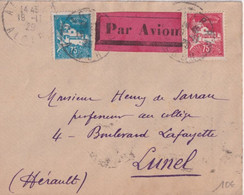 Par Avion
Monsieur Henry de Sarrau
professeur au collège
4 - Boulevard Lafayette
Lunel
(Hérault)